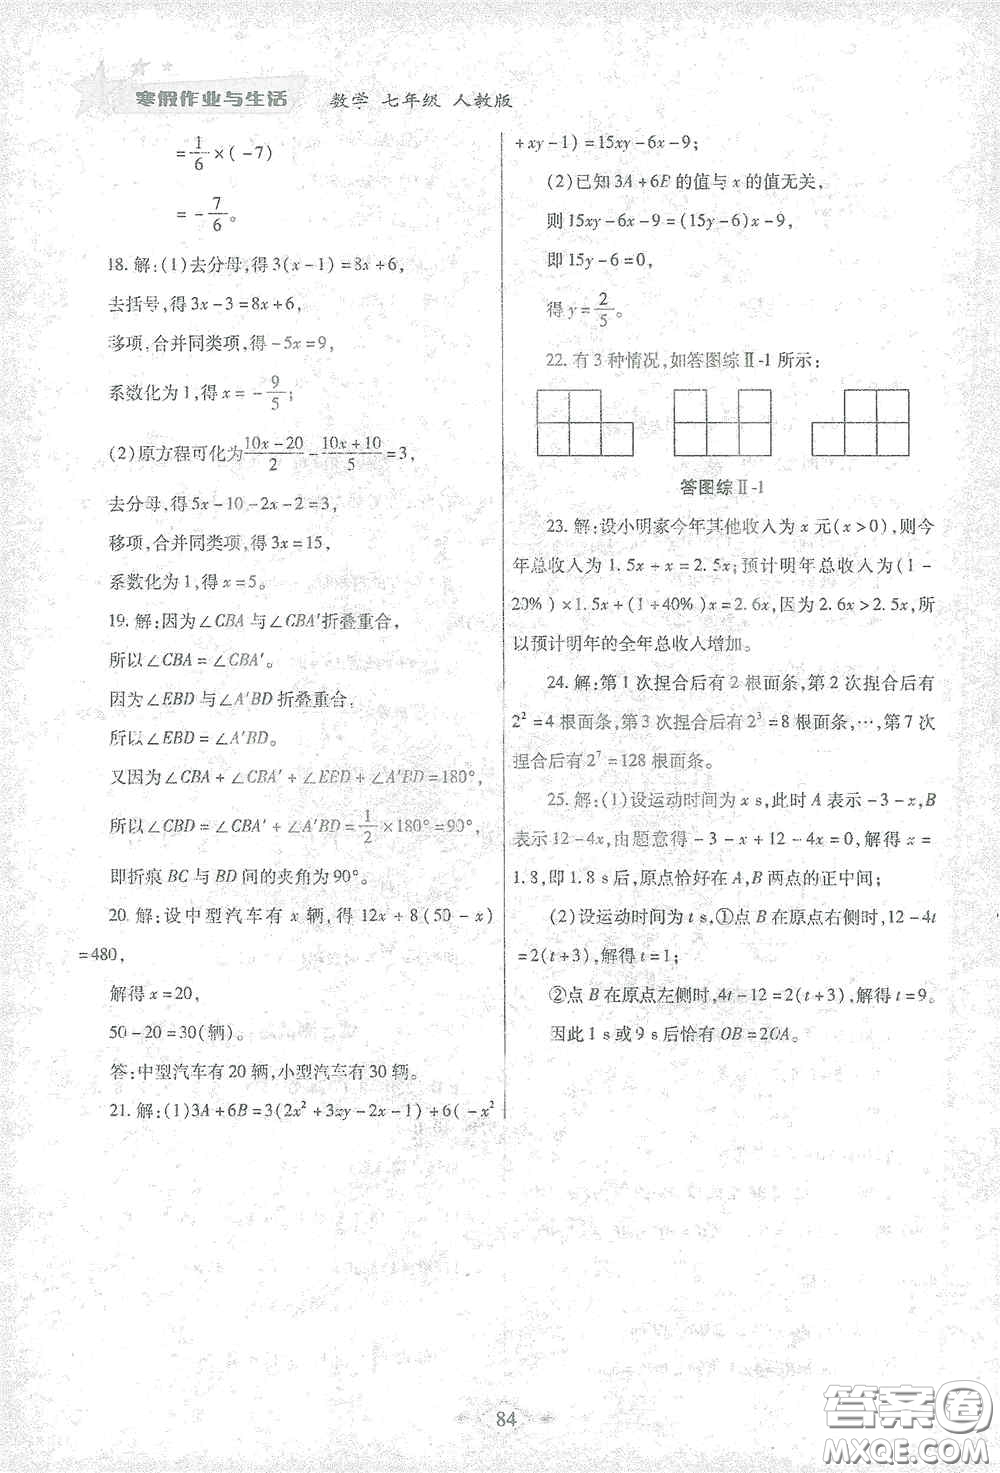 寒假作业与生活 数学 七年级 人教版
=1/6×(-7)
=-7/6。
18.解:(1)去分母,得3(x-1)=8x+6,
去括号,得3x-3=8x+6,
移项,合并同类项,得-5x=9,
系数化为1,得x=-9/5;
(2)原方程可化为(10x-20)/2-(10x+10)/5=3,
去分母,得5x-10-2x-2=3,
移项,合并同类项,得3x=15,
系数化为1,得x=5。
19.解:因为∠CBA与∠CBA′折叠重合,
所以∠CBA=∠CBA′。
因为∠EBD与∠A′BD折叠重合,
所以∠EBD=∠A′BD。
又因为∠CBA+∠CBA′+∠EBD+∠A′BD=180°,
所以∠CBD=∠CBA′+∠A′BD=1/2×180°=90°,
即折痕BC与BD间的夹角为90°。
20.解:设中型汽车有x辆,得12x+8(50-x)
=480,
解得x=20,
50-20=30(辆)。
答:中型汽车有20辆,小型汽车有30辆。
21.解:(1)3A+6B=3(2x²+3xy-2x-1)+6(-x²
+xy-1)=15xy-6x-9;
(2)已知3A+6B的值与x的值无关,
则15xy-6x-9=(15y-6)x-9,
即15y-6=0,
得y=2/5。
22.有3种情况,如答图综Ⅱ-1所示:
答图综Ⅱ-1
23.解:设小明家今年其他收入为x元(x>0),则今
年总收入为1.5x+x=2.5x;预计明年总收入为(1-
20%)×1.5x+(1+40%)x=2.6x,因为2.6x>2.5x,所
以预计明年的全年总收入增加。
24.解:第1次捏合后有2根面条,第2次捏合后有
2²=4根面条,第3次捏合后有2³=8根面条,…,第7次
捏合后有2⁷=128根面条。
25.解:(1)设运动时间为x s,此时A表示-3-x,B
表示12-4x,由题意得-3-x+12-4x=0,解得x=
1.8,即1.8 s后,原点恰好在A,B两点的正中间;
(2)设运动时间为t s,①点B在原点右侧时,12-4t
=2(t+3),解得t=1;
②点B在原点左侧时,4t-12=2(t+3),解得t=9。
因此1 s或9 s后恰有OB=2OA。
84
答案圈
MXQE.COM